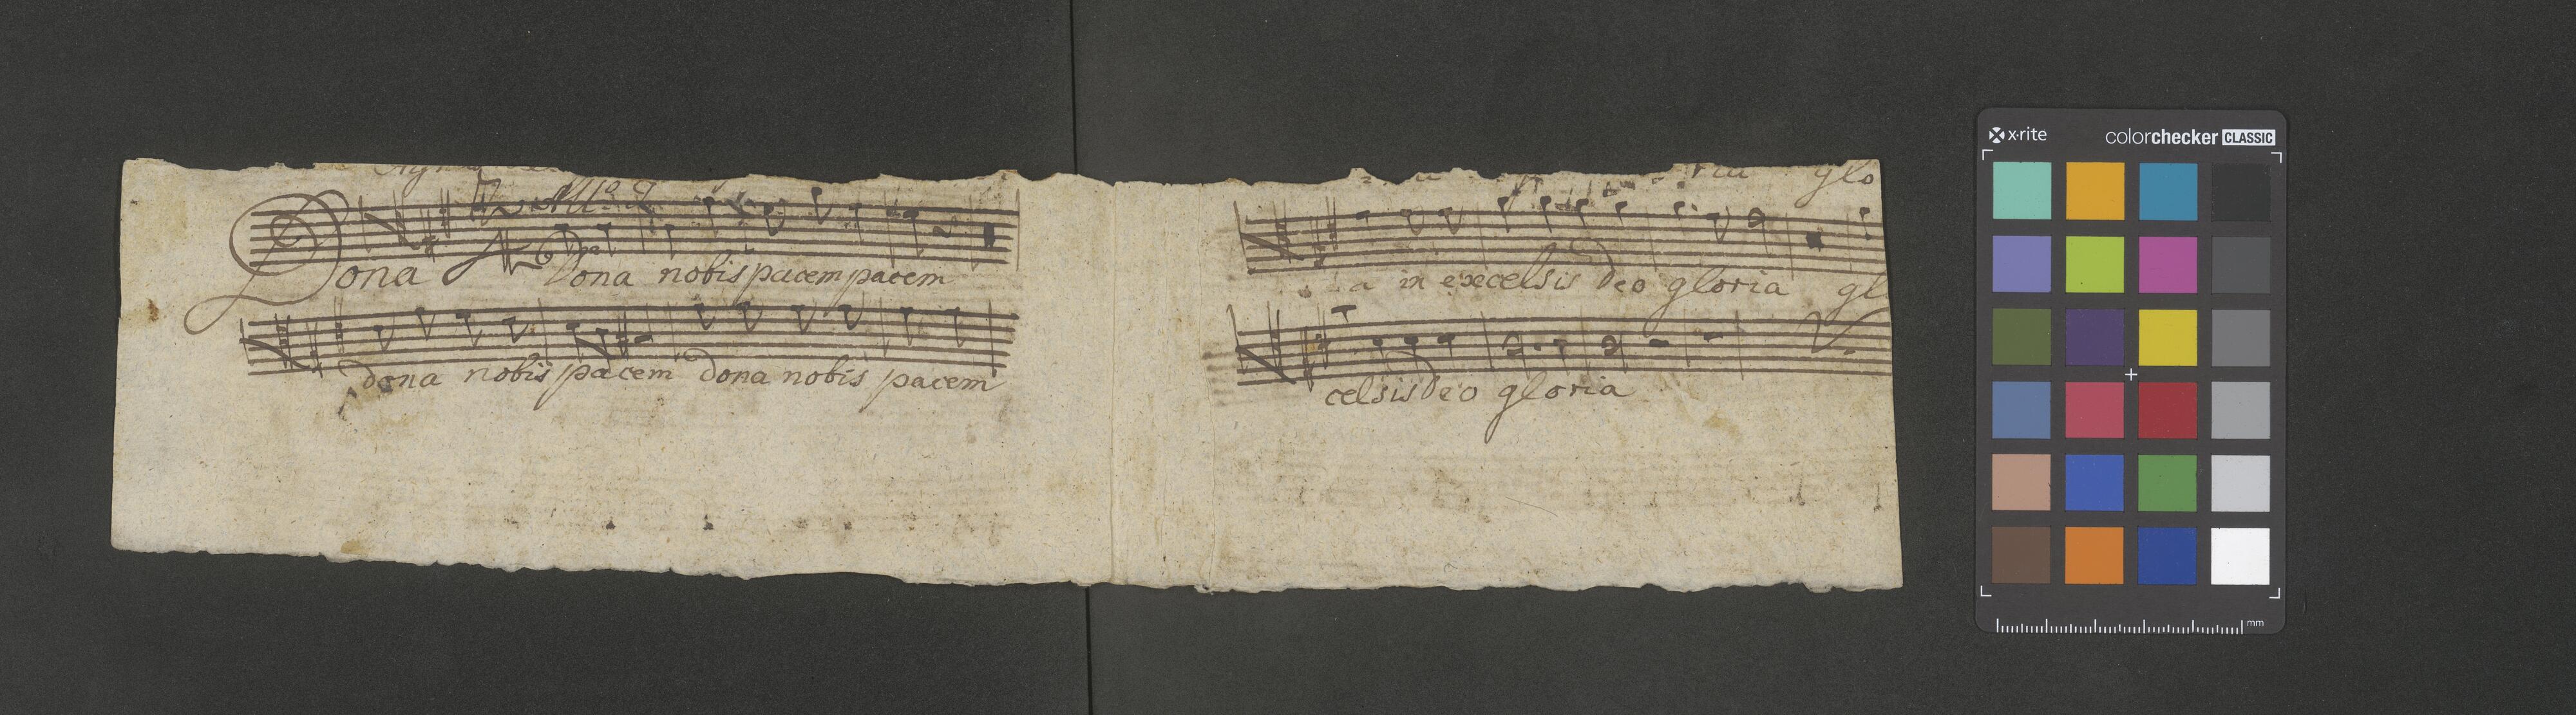 All.º
Dona Dona nobis pacem pacem
dona nobis pacem dona nobis pacem
glo
a in excelsis Deo gloria gl
celsis Deo gloria
x·rite colorchecker CLASSIC
mm